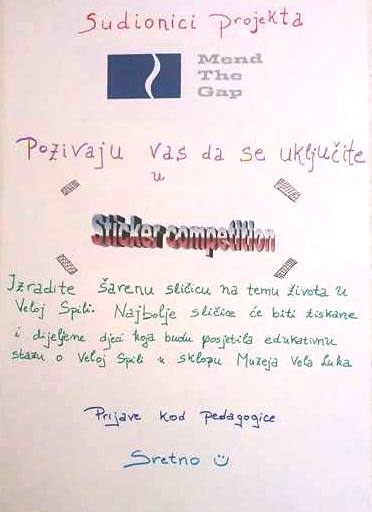 Sudionici projekta
Mend
The
Gap
Pozivaju vas da se uključite
u
Sticker competition
Izradite šarenu sličicu na temu života u
Veloj Spili. Najbolje sličice će biti tiskane
i dijeljene djeci koja budu posjetila edukativnu
stazu o Veloj Spili u sklopu Muzeja Vela Luka
Prijave kod pedagogice
Sretno ☺